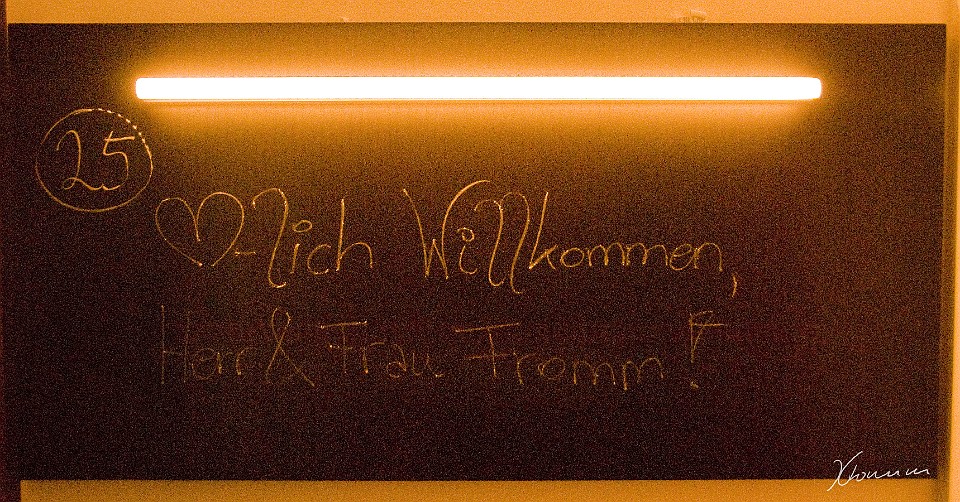 25
♡-lich Willkommen,
Herr & Frau Fromm!